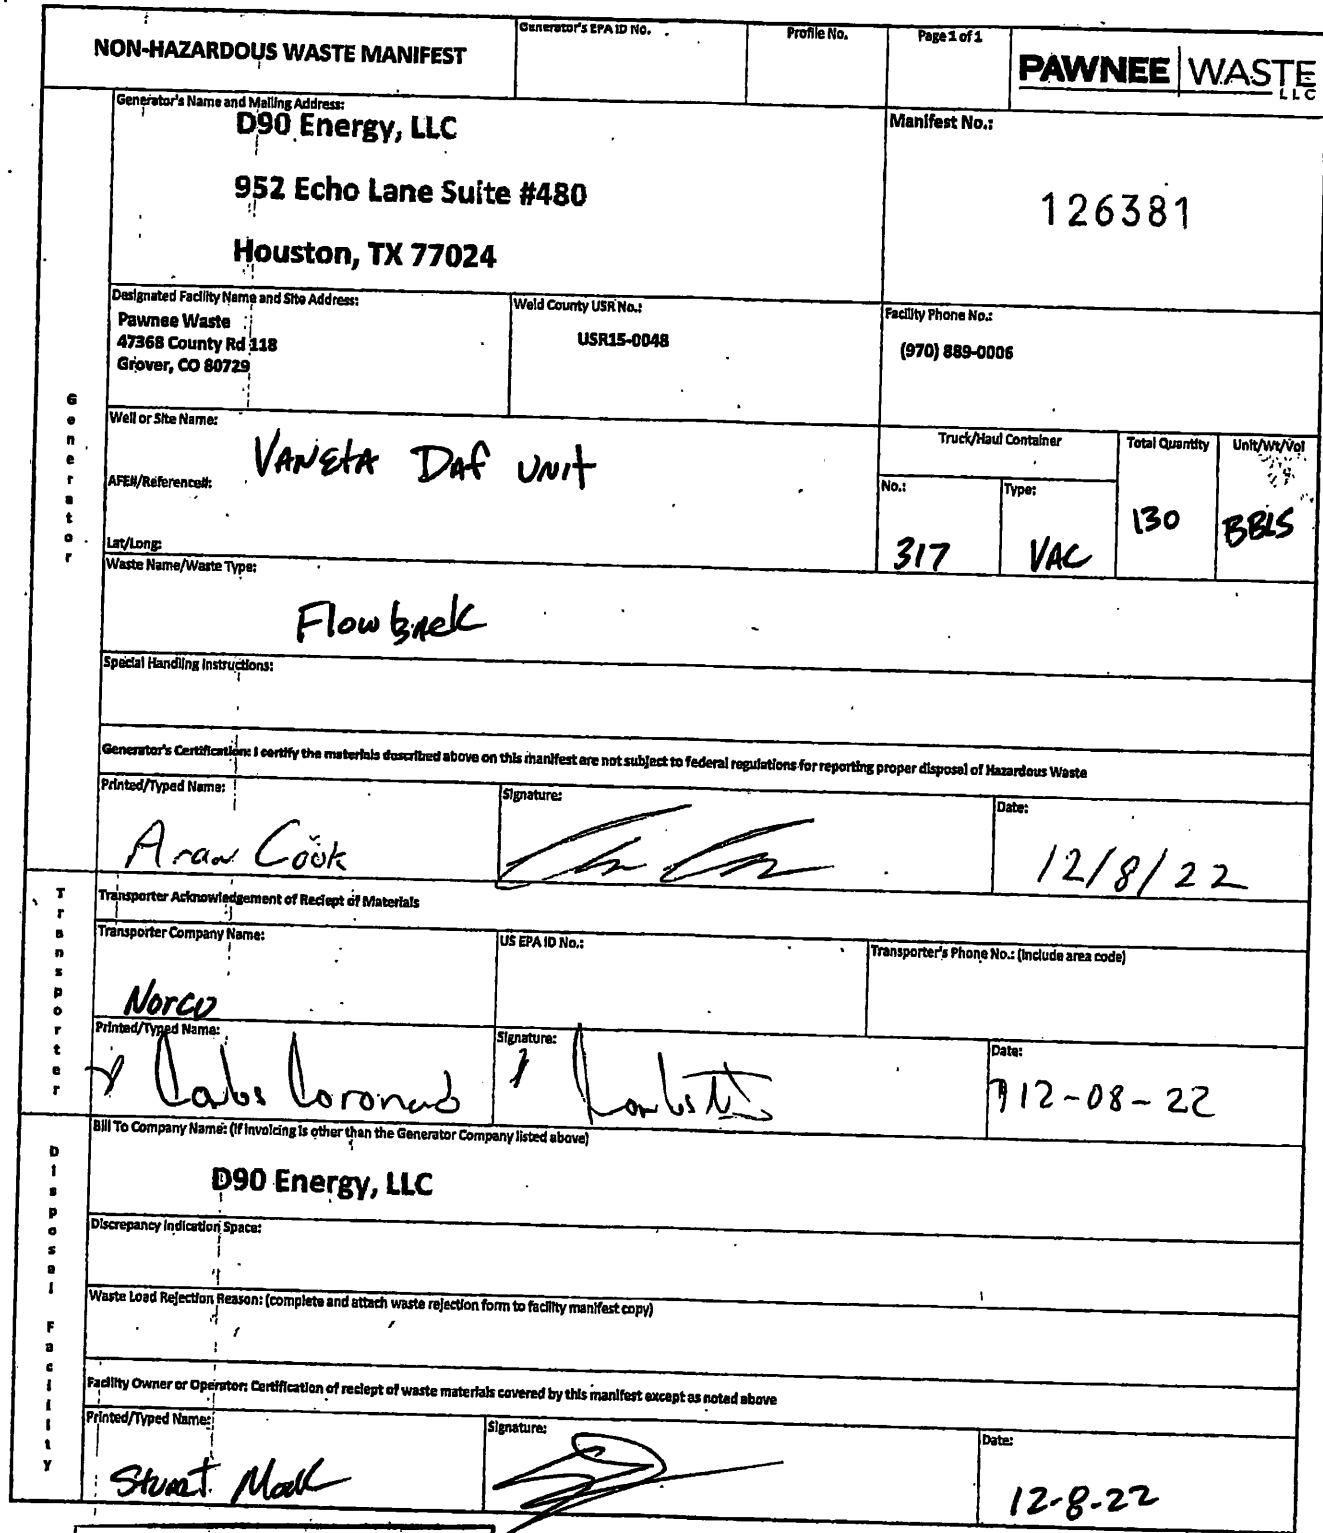 NON-HAZARDOUS WASTE MANIFEST
Generator's EPA ID No.
Profile No.
Page 1 of 1
PAWNEE WASTE
LLC
Generator's Name and Mailing Address:
D90 Energy, LLC
952 Echo Lane Suite #480
Houston, TX 77024
Manifest No.:
126381
Designated Facility Name and Site Address:
Pawnee Waste
47368 County Rd 118
Grover, CO 80729
Weld County USR No.:
USR15-0048
Facility Phone No.:
(970) 889-0006
Generator
Well or Site Name:
VANETA DAF UNIT
AFE#/Reference#:
Lat/Long:
Truck/Haul Container
No.:
317
Type:
VAC
Total Quantity
130
Unit/Wt/Vol
BBLS
Waste Name/Waste Type:
Flowback
Special Handling Instructions:
Generator's Certification: I certify the materials described above on this manifest are not subject to federal regulations for reporting proper disposal of Hazardous Waste
Printed/Typed Name:
Aran Cook
Signature:
Date:
12/8/22
Transporter
Transporter Acknowledgement of Reciept of Materials
Transporter Company Name:
Norco
US EPA ID No.:
Transporter's Phone No.: (include area code)
Printed/Typed Name:
Carlos Coronado
Signature:
Date:
12-08-22
Disposal Facility
Bill To Company Name: (If invoicing is other than the Generator Company listed above)
D90 Energy, LLC
Discrepancy Indication Space:
Waste Load Rejection Reason: (complete and attach waste rejection form to facility manifest copy)
Facility Owner or Operator: Certification of reciept of waste materials covered by this manifest except as noted above
Printed/Typed Name:
Stuart
Signature:
Date:
12-8-22